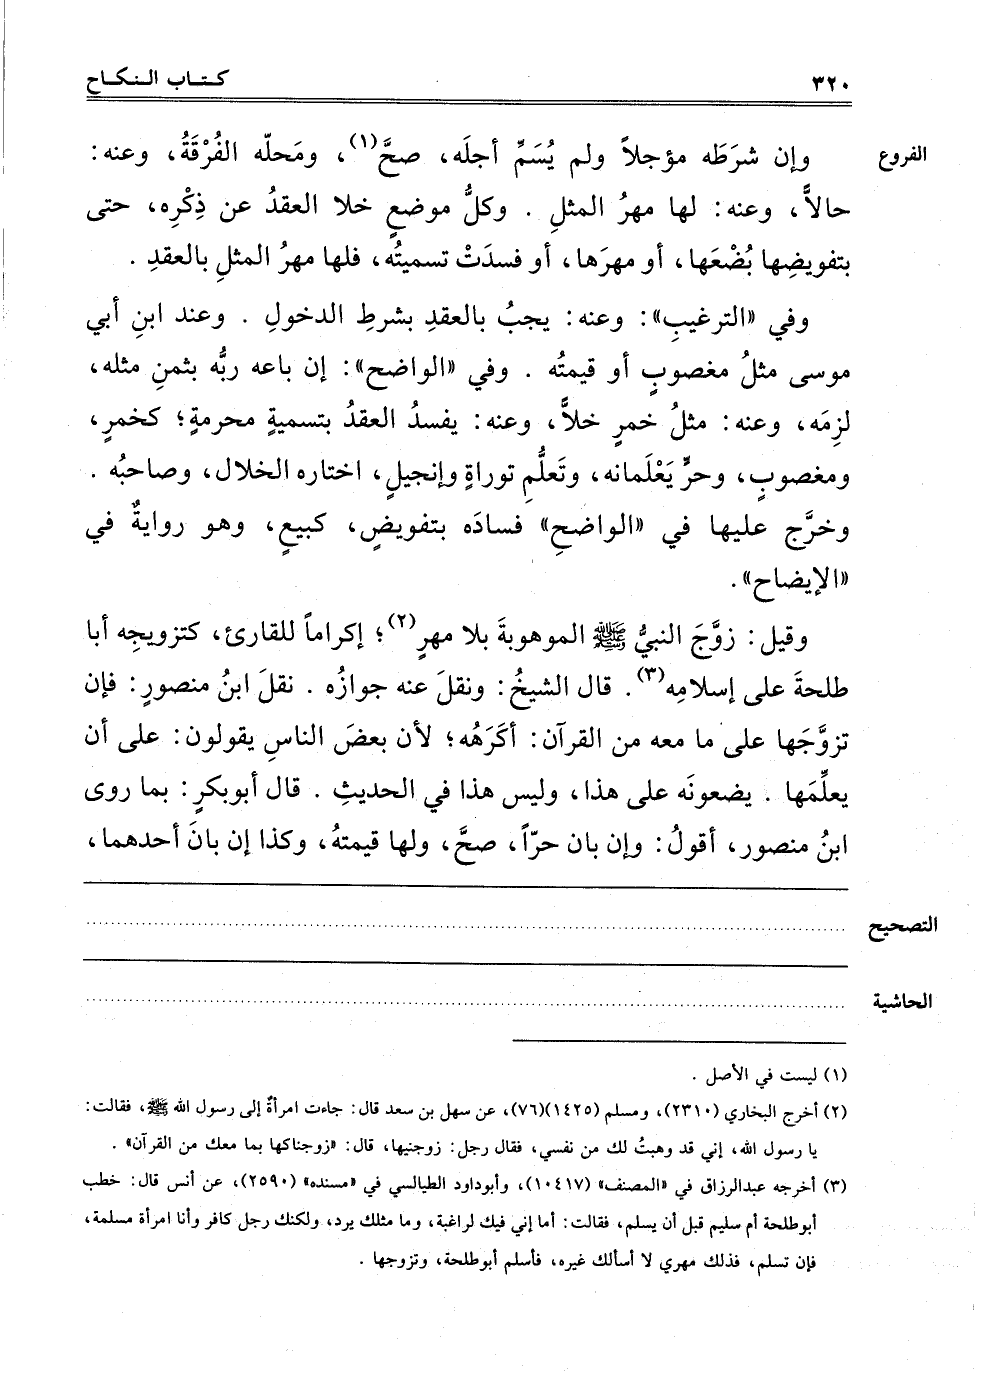 ٣٢٠
كتاب النكاح
الفروع
وإن شرَطَه مؤجلاً ولم يُسَمِّ أجلَه، صحَّ(١)، ومَحلّه الفُرْقَةُ، وعنه:
حالاًّ، وعنه: لها مهرُ المثلِ . وكلُّ موضعٍ خلا العقدُ عن ذِكْرِه، حتى
بتفويضِها بُضْعَها، أو مهرَها، أو فسدَتْ تسميتُه، فلها مهرُ المثلِ بالعقدِ .
وفي «الترغيبِ»: وعنه: يجبُ بالعقدِ بشرطِ الدخولِ . وعند ابنِ أبي
موسى مثلُ مغصوبٍ أو قيمتُه . وفي «الواضح»: إن باعه ربُّه بثمنِ مثله،
لزِمَه، وعنه: مثلُ خمرٍ خلاًّ، وعنه: يفسدُ العقدُ بتسميةٍ محرمةٍ؛ كخمرٍ،
ومغصوبٍ، وحرٍّ يَعْلَمانه، وتَعلُّمِ توراةٍ وإنجيلٍ، اختاره الخلال، وصاحبُه .
وخرَّج عليها في «الواضحِ» فسادَه بتفويضٍ، كبيعٍ، وهو روايةٌ في
«الإيضاح».
وقيل: زوَّجَ النبيُّ ﷺ الموهوبةَ بلا مهرٍ(٢)؛ إكراماً للقارئ، كتزويجِه أبا
طلحةَ على إسلامِه(٣). قال الشيخُ: ونقلَ عنه جوازُه . نقلَ ابنُ منصورٍ: فإن
تزوَّجَها على ما معه من القرآن: أكَرَهُه؛ لأن بعضَ الناسِ يقولون: على أن
يعلِّمَها . يضعونَه على هذا، وليس هذا في الحديثِ . قال أبوبكرٍ: بما روى
ابنُ منصور، أقولُ: وإن بان حرّاً، صحَّ، ولها قيمتهُ، وكذا إن بانَ أحدهما،
التصحيح
الحاشية
(١) ليست في الأصل .
(٢) أخرج البخاري (٢٣١٠)، ومسلم (١٤٢٥)(٧٦)، عن سهل بن سعد قال: جاءت امرأةٌ إلى رسول الله ﷺ، فقالت:
يا رسول الله، إني قد وهبتُ لك من نفسي، فقال رجل: زوجنيها، قال: «زوجناكها بما معك من القرآن» .
(٣) أخرجه عبدالرزاق في «المصنف» (١٠٤١٧)، وأبوداود الطيالسي في «مسنده» (٢٥٩٠)، عن أنس قال: خطب
أبوطلحة أم سليم قبل أن يسلم، فقالت: أما إني فيك لراغبة، وما مثلك يرد، ولكنك رجل كافر وأنا امرأة مسلمة،
فإن تسلم، فذلك مهري لا أسألك غيره، فأسلم أبوطلحة، وتزوجها .